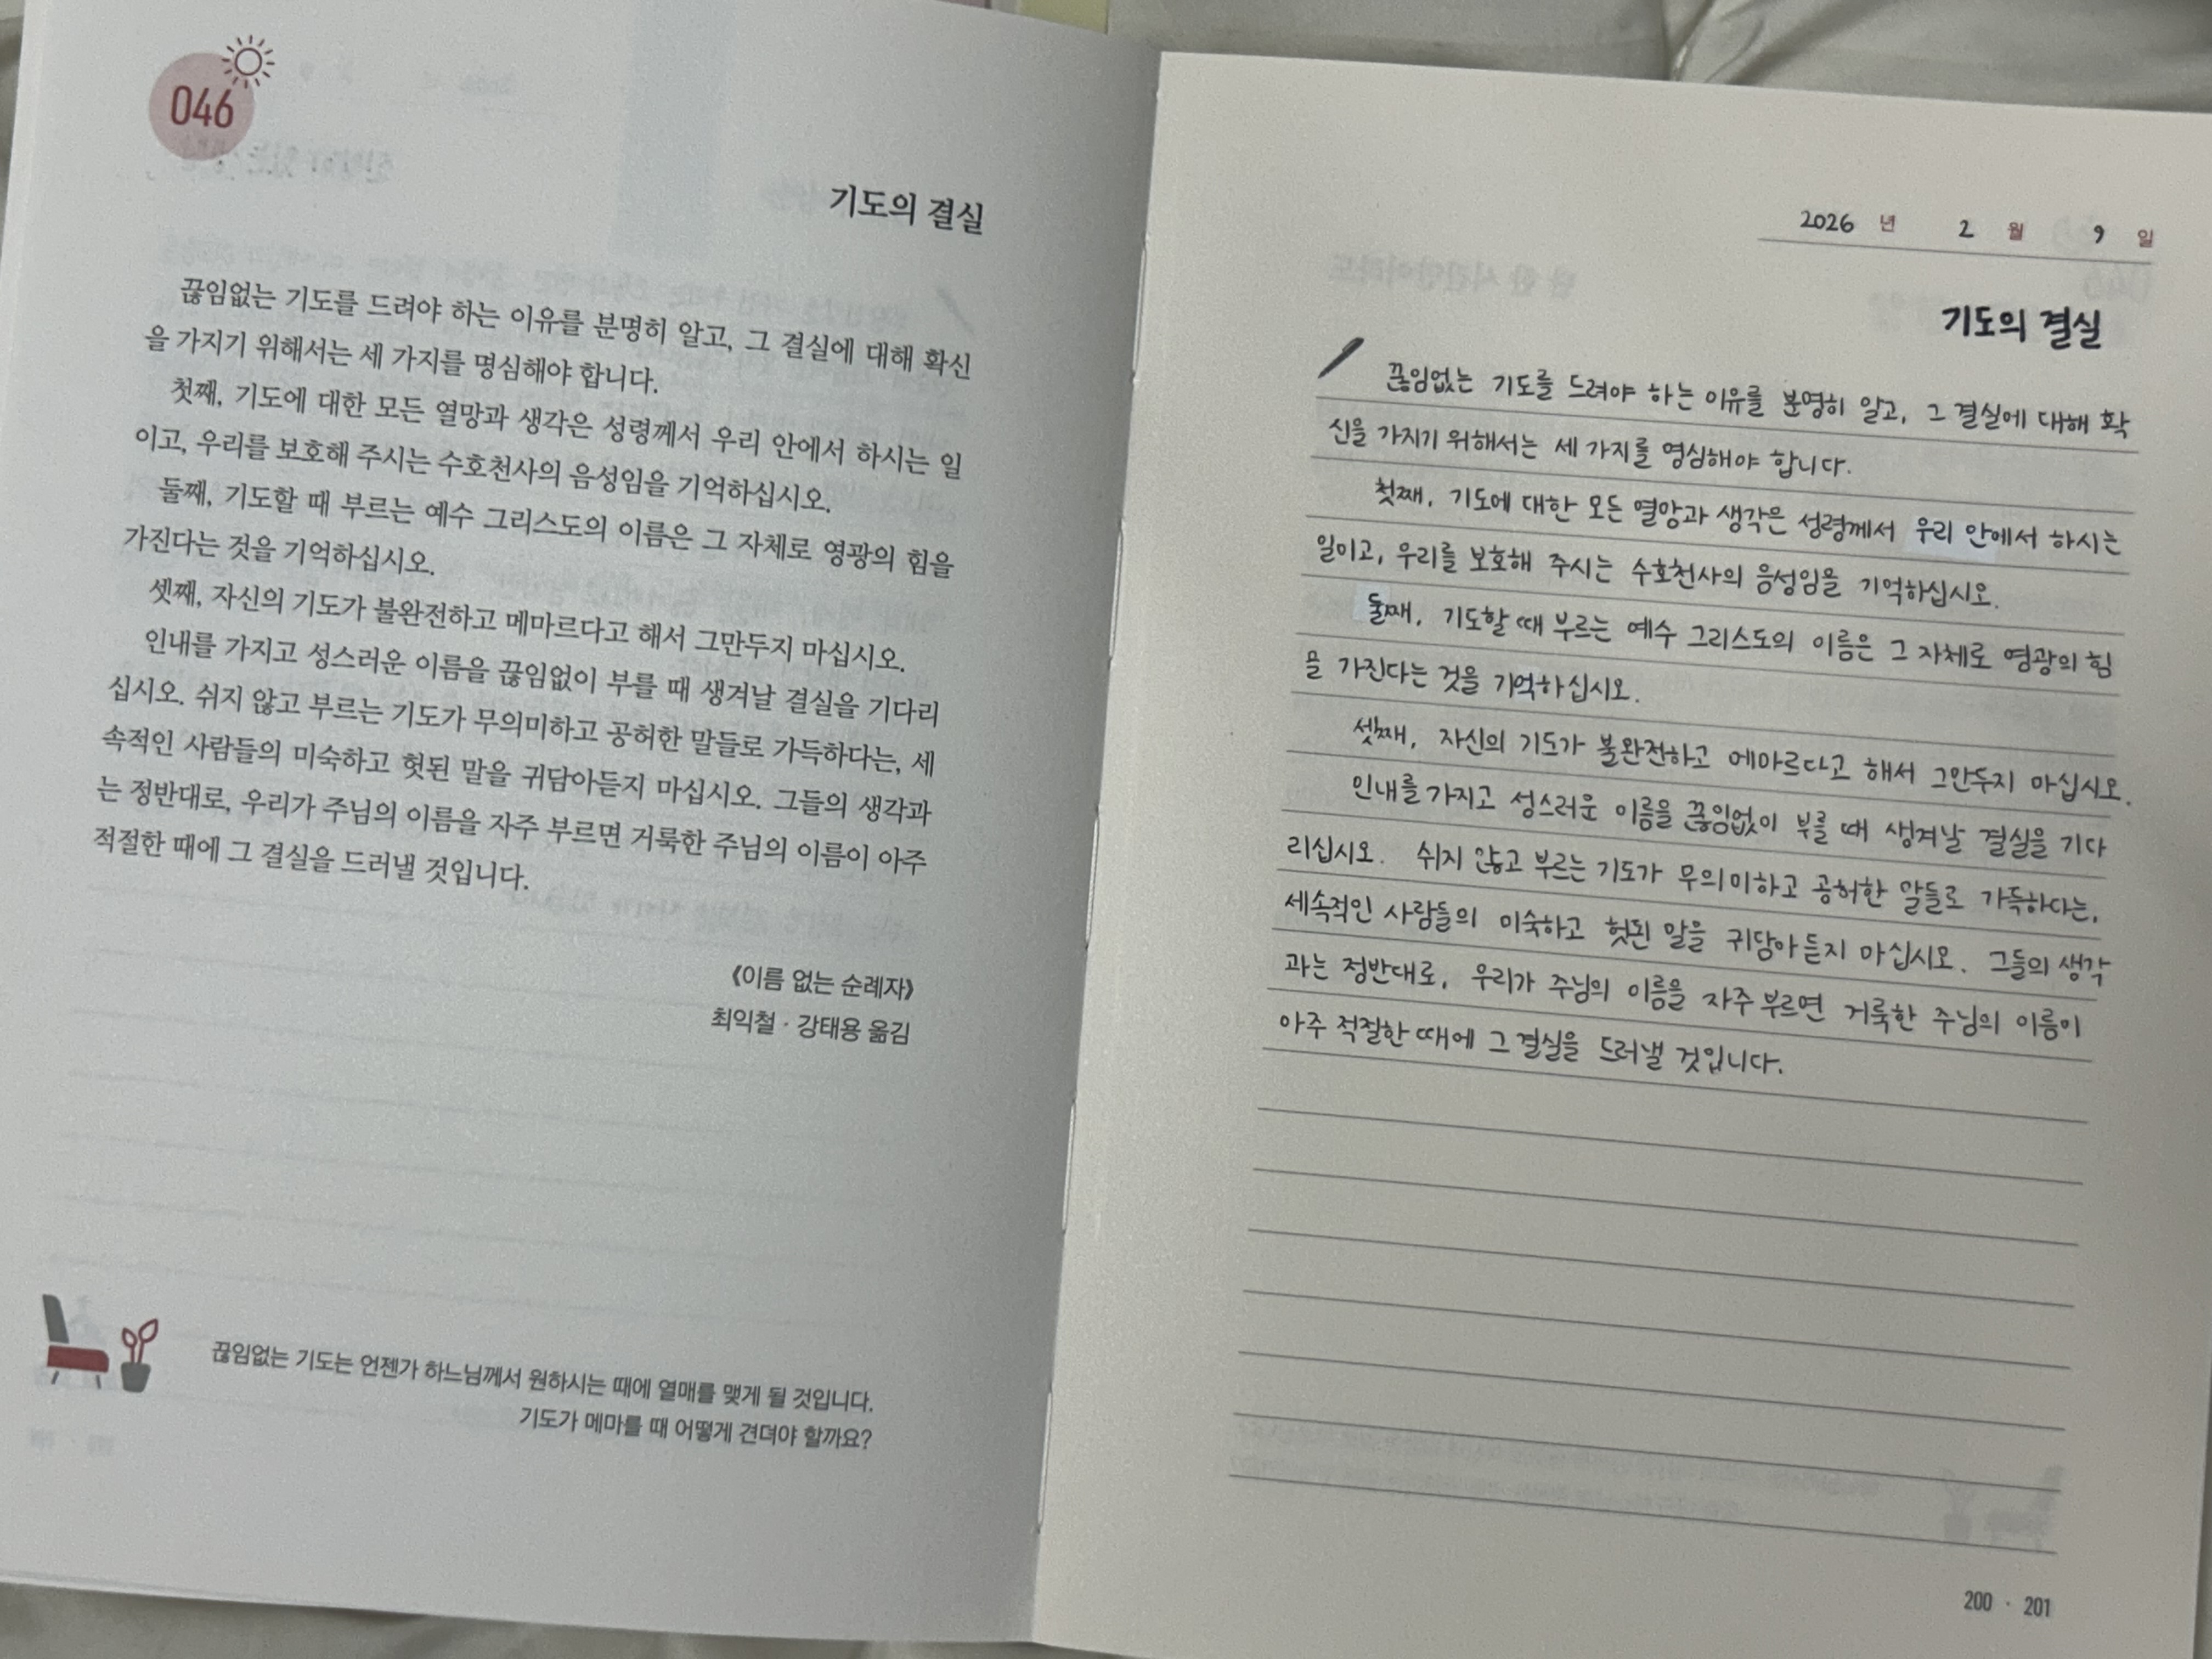 046
기도의 결실
끊임없는 기도를 드려야 하는 이유를 분명히 알고, 그 결실에 대해 확신
을 가지기 위해서는 세 가지를 명심해야 합니다.
첫째, 기도에 대한 모든 열망과 생각은 성령께서 우리 안에서 하시는 일
이고, 우리를 보호해 주시는 수호천사의 음성임을 기억하십시오.
둘째, 기도할 때 부르는 예수 그리스도의 이름은 그 자체로 영광의 힘을
가진다는 것을 기억하십시오.
셋째, 자신의 기도가 불완전하고 메마르다고 해서 그만두지 마십시오.
인내를 가지고 성스러운 이름을 끊임없이 부를 때 생겨날 결실을 기다리
십시오. 쉬지 않고 부르는 기도가 무의미하고 공허한 말들로 가득하다는, 세
속적인 사람들의 미숙하고 헛된 말을 귀담아듣지 마십시오. 그들의 생각과
는 정반대로, 우리가 주님의 이름을 자주 부르면 거룩한 주님의 이름이 아주
적절한 때에 그 결실을 드러낼 것입니다.
《이름 없는 순례자》
최익철 · 강태용 옮김
끊임없는 기도는 언젠가 하느님께서 원하시는 때에 열매를 맺게 될 것입니다.
기도가 메마를 때 어떻게 견뎌야 할까요?
2026 년 2 월 9 일
기도의 결실
끊임없는 기도를 드려야 하는 이유를 분명히 알고, 그 결실에 대해 확
신을 가지기 위해서는 세 가지를 명심해야 합니다.
첫째, 기도에 대한 모든 열망과 생각은 성령께서 우리 안에서 하시는
일이고, 우리를 보호해 주시는 수호천사의 음성임을 기억하십시오.
둘째, 기도할 때 부르는 예수 그리스도의 이름은 그 자체로 영광의 힘
을 가진다는 것을 기억하십시오.
셋째, 자신의 기도가 불완전하고 메마르다고 해서 그만두지 마십시오.
인내를 가지고 성스러운 이름을 끊임없이 부를 때 생겨날 결실을 기다
리십시오. 쉬지 않고 부르는 기도가 무의미하고 공허한 말들로 가득하다는,
세속적인 사람들의 미숙하고 헛된 말을 귀담아듣지 마십시오. 그들의 생각
과는 정반대로, 우리가 주님의 이름을 자주 부르면 거룩한 주님의 이름이
아주 적절한 때에 그 결실을 드러낼 것입니다.
200 · 201